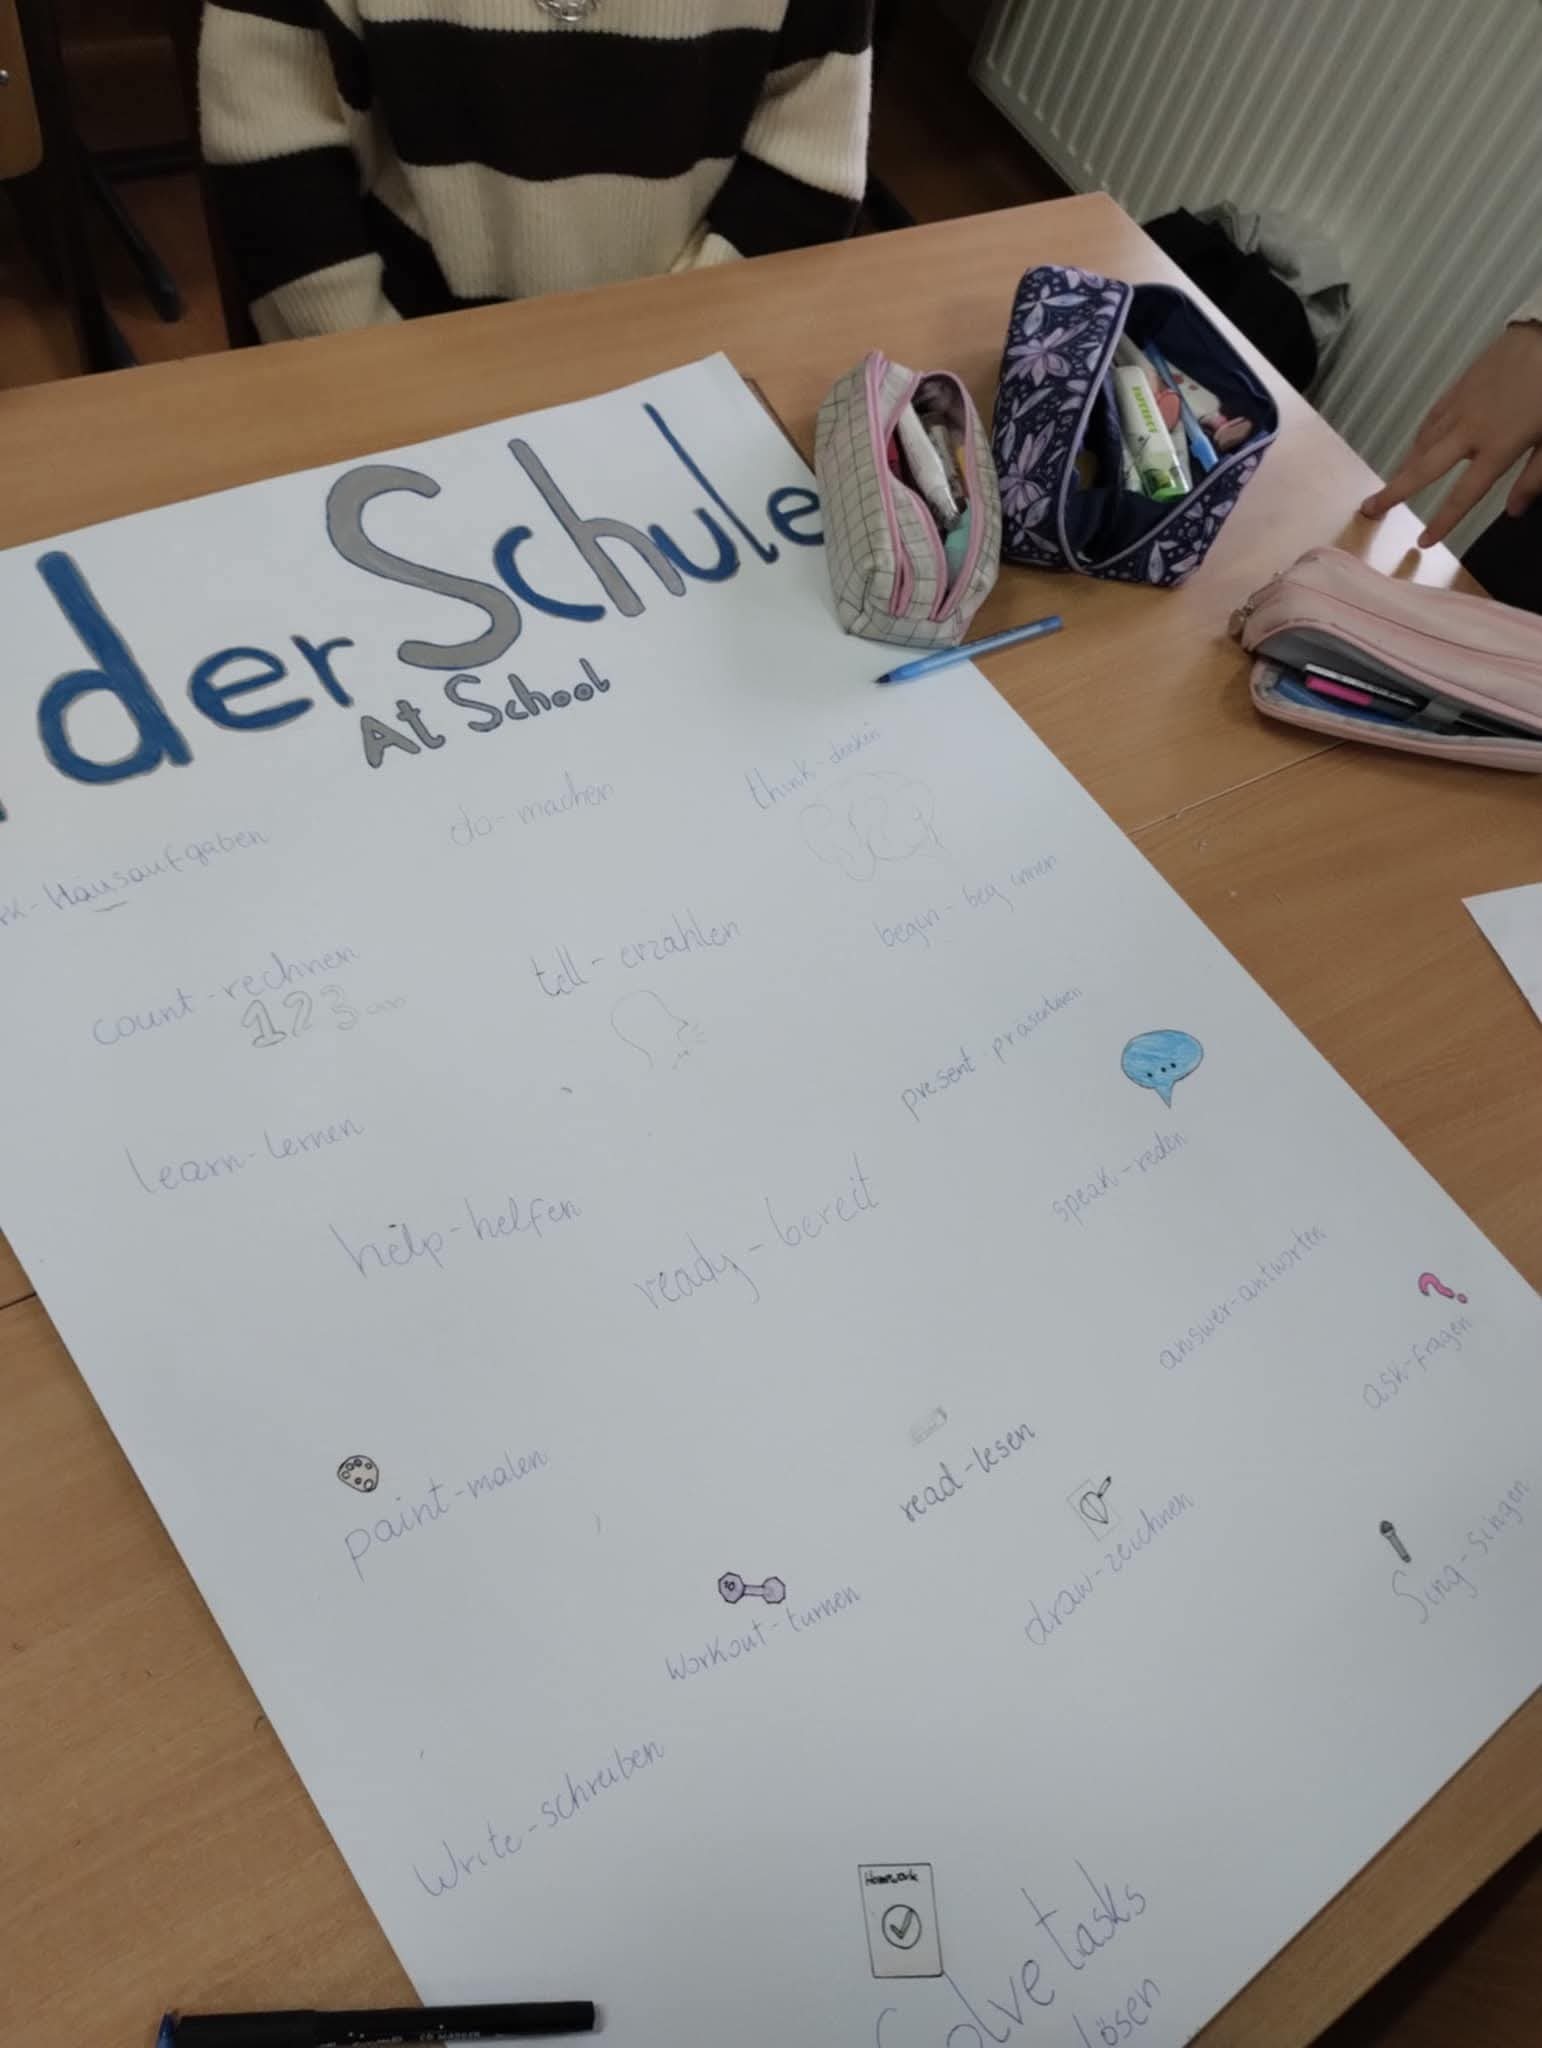 der Schule
At School
Hausaufgaben
do-machen
think-denken
count-rechnen
123
tell-erzahlen
begin-beginnen
learn-lernen
present-präsentieren
help-helfen
ready-bereit
speak-reden
answer-antworten
ask-fragen
?
paint-malen
read-lesen
workout-turnen
draw-zeichnen
Sing-singen
Write-schreiben
Homework
Solve tasks
lösen